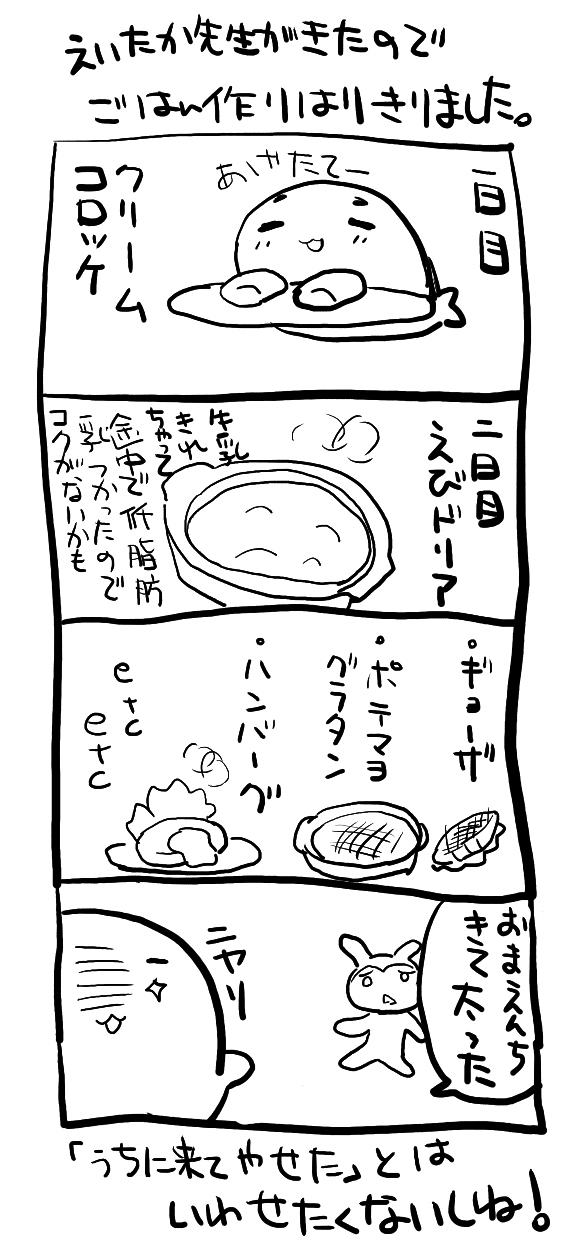 えいたか先生がきたので
ごはん作りはりきりました。
一日目
あげたてー
クリーム
コロッケ
二日目
えびドリア
牛乳
きれ
ちゃって
途中で低脂肪
乳つかったので
コクがないかも
・ギョーザ
・ポテマヨ
グラタン
・ハンバーグ
etc
etc
おまえんち
きて太った
ニヤリ
「うちに来てやせた」とは
いわせたくないしね!